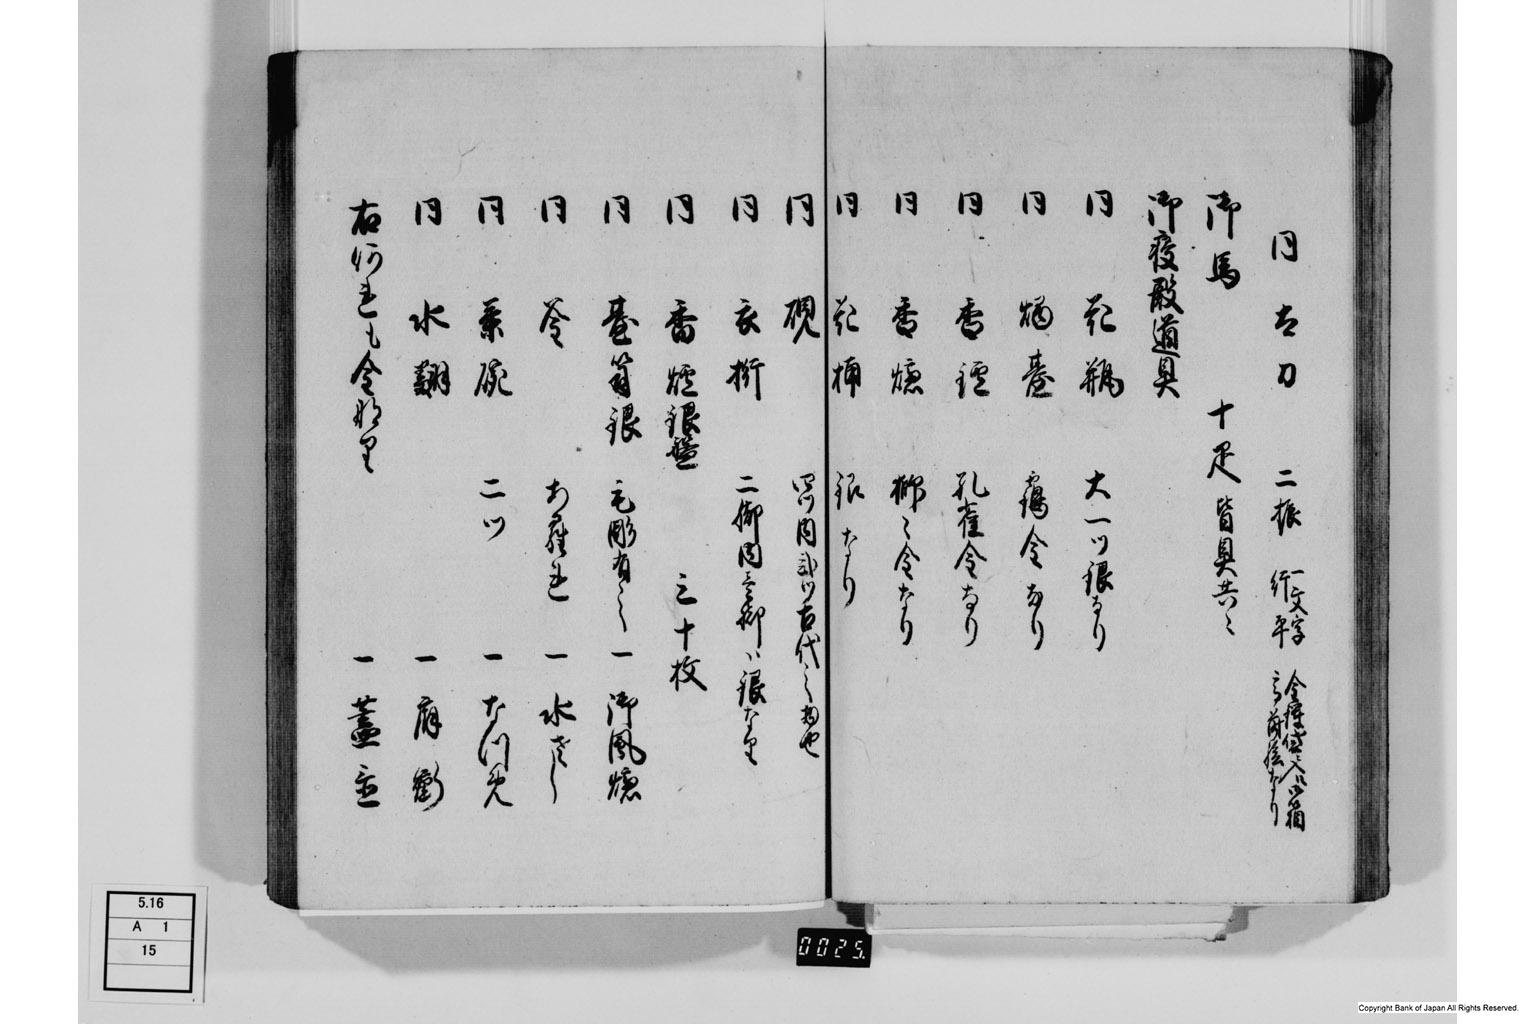 同 太刀 二振 一文字 行平
御馬 十疋 皆具共ニ
御寝殿道具
同 花瓶 大一ツ銀なり
同 燭臺 鶴金なり
同 香鑪 孔雀金なり
同 香爐 獅々金なり
同 花桶 銀なり
同 硯 四ツ内弐ツ古代之物也
同 衣桁 二御内壱御ハ銀なり
同 香爐銀盤 三十枚
同 臺 銀 毛彫有之 一 御風爐
同 釜 あられ 一 水さし
同 茶碗 二ツ 一 なつめ
同 水翻 一 一
右何連も金なり 一 蓋置
5.16
A 1
15
0025
Copyright Bank of Japan All Rights Reserved.